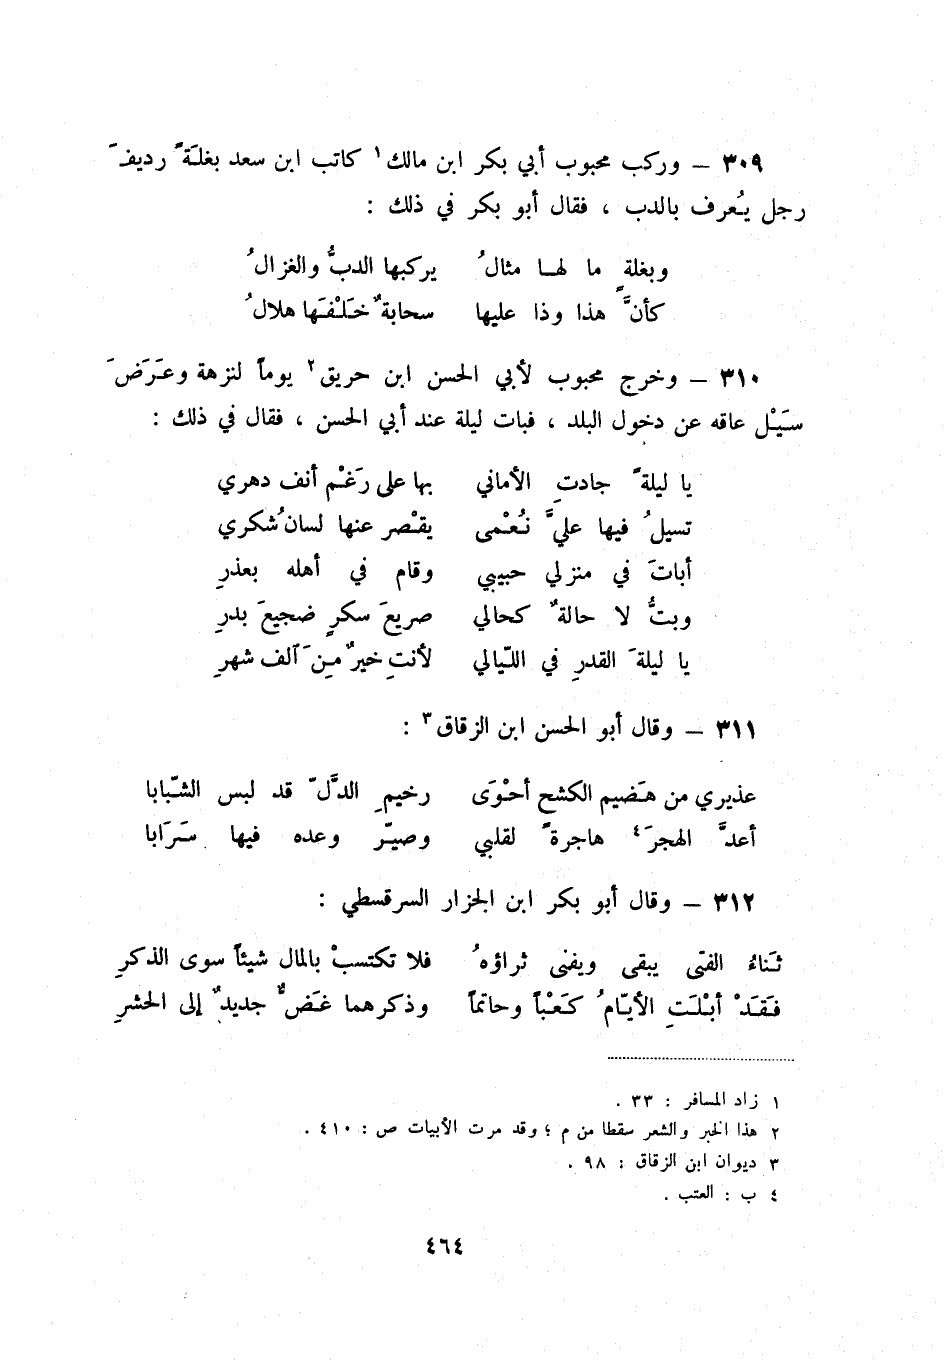 ٣٠٩ – وركب محبوب أبي بكر ابن مالك١ كاتب ابن سعد بغلةً رديفَ
رجل يُعرف بالدب ، فقال أبو بكر في ذلك :
وبغلةٍ ما لها مثالُ يركبها الدبُّ والغزالُ
كأنَّ هذا وذا عليها سحابةٌ خَلْفَها هلالُ
٣١٠ – وخرج محبوب لأبي الحسن ابن حريق٢ يوماً لنزهة وعَرَضَ
سَيْل عاقه عن دخول البلد ، فبات ليلة عند أبي الحسن ، فقال في ذلك :
يا ليلةً جادتِ الأماني بها على رَغْم أنف دهري
تسيلُ فيها عليَّ نُعْمى يقْصر عنها لسانُ شكري
أباتَ في منزلي حبيبي وقام في أهله بعذرِ
وبتُّ لا حالةٌ كحالي صريعَ سكرٍ ضجيعَ بدرِ
يا ليلةَ القدرِ في اللّيالي لأنتِ خيرٌ مِنَ ألف شهرِ
٣١١ – وقال أبو الحسن ابن الزقاق٣ :
عذيري من هَضيم الكشح أحْوَى رخيمِ الدَّلّ قد لبس الشّبابا
أعدَّ الهجرَ٤ هاجرةً لقلبي وصيّر وعده فيها سَرَابا
٣١٢ – وقال أبو بكر ابن الجزار السرقسطي :
ثَناءُ الفتى يبقى ويفنى ثراؤهُ فلا تكتسبْ بالمال شيئاً سوى الذكرِ
فَقَدْ أبْلَتِ الأيّامُ كَعْباً وحاتماً وذكرهما غَضٌّ جديدٌ إلى الحشرِ
١ زاد المسافر : ٣٣ .
٢ هذا الخبر والشعر سقطا من م ؛ وقد مرت الأبيات ص : ٤١٠ .
٣ ديوان ابن الزقاق : ٩٨ .
٤ ب : العتب .
٤٦٤